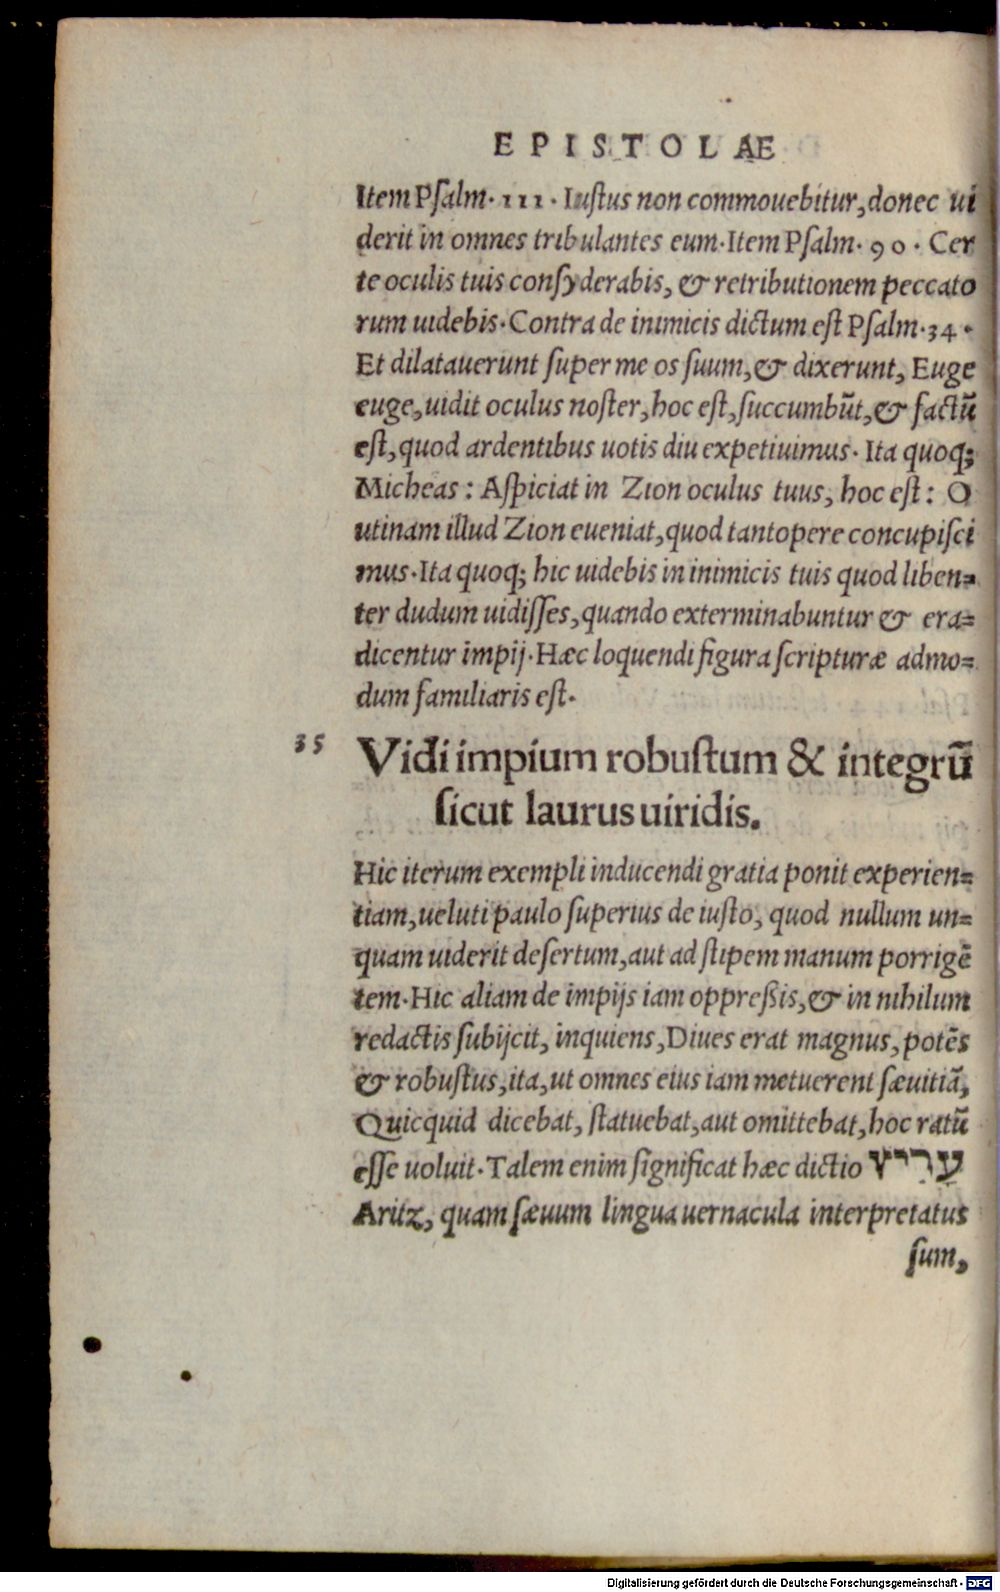 EPISTOLAE
Item Psalm. 111. Iustus non commouebitur, donec ui
derit in omnes tribulantes eum. Item Psalm. 90. Cer
te oculis tuis consyderabis, & retributionem peccato
rum uidebis. Contra de inimicis dictum est Psalm. 34.
Et dilatauerunt super me os suum, & dixerunt, Euge
euge, uidit oculus noster, hoc est, succumbūt, & factū
est, quod ardentibus uotis diu expetiuimus. Ita quoq;
Micheas: Aspiciat in Zion oculus tuus, hoc est: O
utinam illud Zion eueniat, quod tantopere concupisci
mus. Ita quoq; hic uidebis in inimicis tuis quod liben=
ter dudum uidisses, quando exterminabuntur & era=
dicentur impij. Hæc loquendi figura scripturæ admo=
dum familiaris est.
35 Vidi impium robustum & integrū
sicut laurus uiridis.
Hic iterum exempli inducendi gratia ponit experien=
tiam, ueluti paulo superius de iusto, quod nullum un=
quam uiderit desertum, aut ad stipem manum porrigē
tem. Hic aliam de impijs iam oppreßis, & in nihilum
redactis subijcit, inquiens, Diues erat magnus, potēs
& robustus, ita, ut omnes eius iam metuerent sæuitiā,
Quicquid dicebat, statuebat, aut omittebat, hoc ratū
esse uoluit. Talem enim significat hæc dictio עָרִיץ
Aritz, quam sæuum lingua uernacula interpretatus
sum,
Digitalisierung gefördert durch die Deutsche Forschungsgemeinschaft - DFG